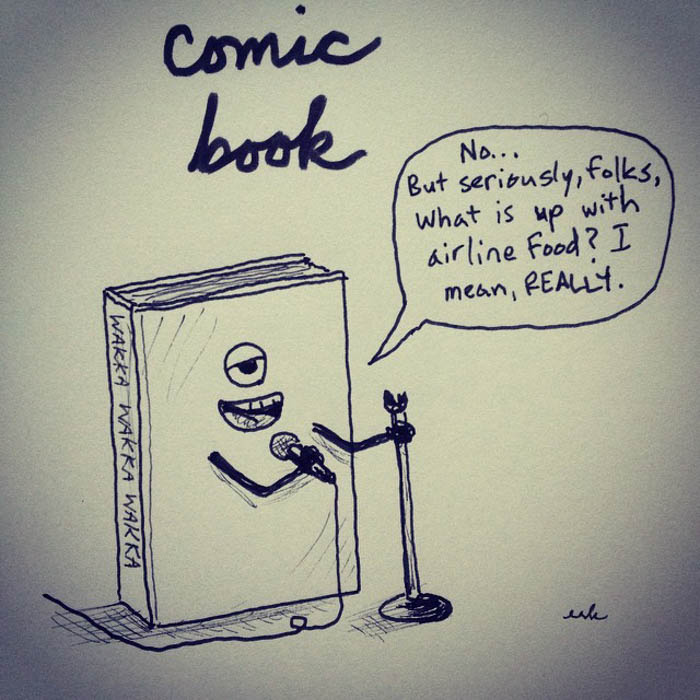 comic
book
No...
But seriously, folks,
what is up with
airline food? I
mean, REALLY.
WAKKA WAKKA WAKKA